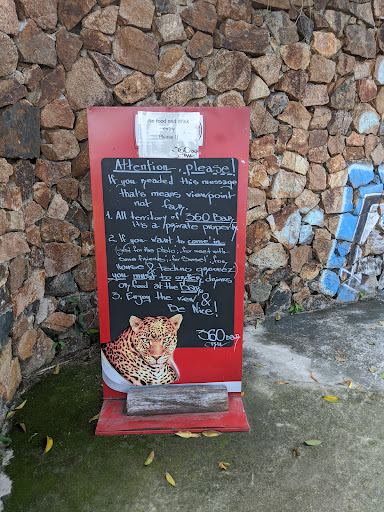 no food and drink
enjoy
Please !
360 BAR
Attention, please!
If you readed this message
that's means viewpoint
not far
1. All territory of 360 Bar,
it's a private property
2. If you want to come in
just for the photo, for meet with
some friends, for sunset, for
house & techno grooves
you must to order drinks
or food at the
Bar.
3. Enjoy the view &
Be Nice!
360 BAR